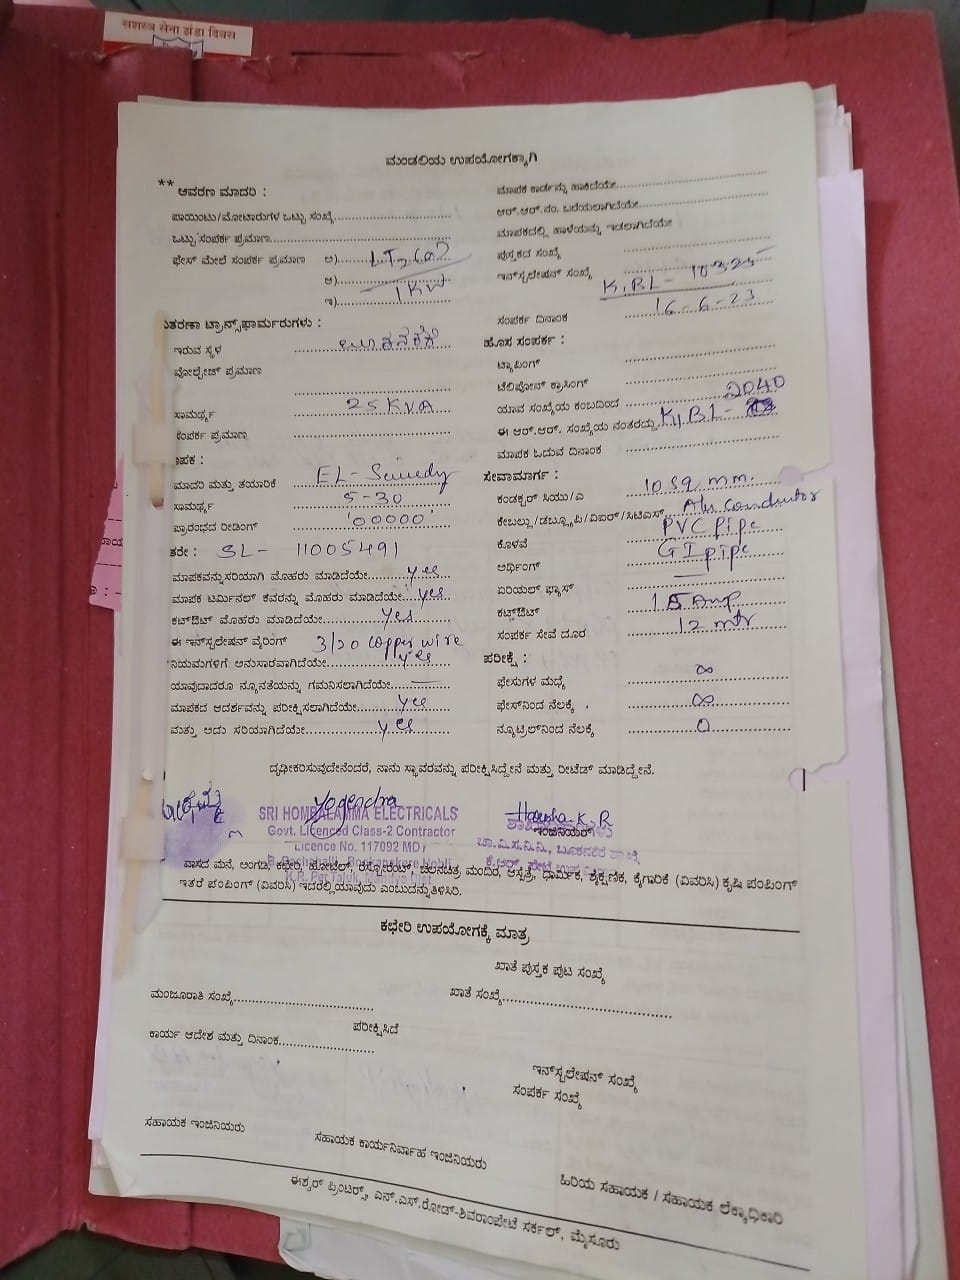 सशस्त्र सेना झंडा दिवस
ಮಂಡಲಿಯ ಉಪಯೋಗಕ್ಕಾಗಿ
** ಆವರಣ ಮಾದರಿ :
ಪಾಯಿಂಟು/ಮೋಟಾರುಗಳ ಒಟ್ಟು ಸಂಖ್ಯೆ
ಒಟ್ಟು ಸಂಪರ್ಕ ಪ್ರಮಾಣ
ಫೇಸ್ ಮೇಲೆ ಸಂಪರ್ಕ ಪ್ರಮಾಣ ಅ)
ಆ) 1KW
ಇ)
ಮಾಪಕ ಕಾರ್ಡನ್ನು ಹಾಕಿದೆಯೇ
ಆರ್.ಆರ್.ನಂ. ಬರೆಯಲಾಗಿದೆಯೇ
ಮಾಪಕದಲ್ಲಿ ಹಾಳೆಯನ್ನು ಇಡಲಾಗಿದೆಯೇ
ಪುಸ್ತಕದ ಸಂಖ್ಯೆ
ಇನ್‌ಸ್ಟಲೇಷನ್ ಸಂಖ್ಯೆ K,BL- 10325
ಸಂಪರ್ಕ ದಿನಾಂಕ 16-6-23
ತರಣಾ ಟ್ರಾನ್ಸ್‌ಫಾರ್ಮರುಗಳು :
ಇರುವ ಸ್ಥಳ
ವೋಲ್ಟೇಜ್ ಪ್ರಮಾಣ
ಸಾಮರ್ಥ್ಯ 25 KVA
ಸಂಪರ್ಕ ಪ್ರಮಾಣ
ಹೊಸ ಸಂಪರ್ಕ :
ಟ್ಯಾಪಿಂಗ್
ಟೆಲಿಫೋನ್ ಕ್ರಾಸಿಂಗ್
ಯಾವ ಸಂಖ್ಯೆಯ ಕಂಬದಿಂದ
ಈ ಆರ್.ಆರ್. ಸಂಖ್ಯೆಯ ನಂತರದ್ದು K,BL- 2040
ಮಾಪಕ ಓದುವ ದಿನಾಂಕ
ಾಪಕ :
ಮಾದರಿ ಮತ್ತು ತಯಾರಿಕೆ
ಸಾಮರ್ಥ್ಯ 5-30
ಪ್ರಾರಂಭದ ರೀಡಿಂಗ್ '00000'
ತರೇ : SL- 11005491
ಮಾಪಕವನ್ನು ಸರಿಯಾಗಿ ಮೊಹರು ಮಾಡಿದೆಯೇ yes
ಮಾಪಕ ಟರ್ಮಿನಲ್ ಕವರನ್ನು ಮೊಹರು ಮಾಡಿದೆಯೇ yes
ಕಟ್‌ಔಟ್ ಮೊಹರು ಮಾಡಿದೆಯೇ yes
ಈ ಇನ್‌ಸ್ಟಲೇಷನ್ ವೈರಿಂಗ್ 3/20 Copper wire
ನಿಯಮಗಳಿಗೆ ಅನುಸಾರವಾಗಿದೆಯೇ yes
ಯಾವುದಾದರೂ ನ್ಯೂನತೆಯನ್ನು ಗಮನಿಸಲಾಗಿದೆಯೇ —
ಮಾಪಕದ ಆದರ್ಶವನ್ನು ಪರೀಕ್ಷಿಸಲಾಗಿದೆಯೇ yes
ಮತ್ತು ಅದು ಸರಿಯಾಗಿದೆಯೇ yes
ಸೇವಾಮಾರ್ಗ :
ಕಂಡಕ್ಟರ್ ಸಿಯು/ಎ 10 sq mm.
ಕೇಬಲ್ಲು/ಡಬ್ಲ್ಯೂಪಿ/ವಿಐಆರ್/ಸಿಟಿಎಸ್ Alu Conductor
ಕೊಳವೆ PVC pipe
ಅರ್ಥಿಂಗ್ GI pipe
ಏರಿಯಲ್ ಫ್ಯೂಸ್ —
ಕಟ್‌ಔಟ್ 15 Amp
ಸಂಪರ್ಕ ಸೇವೆ ದೂರ 12 mtr
ಪರೀಕ್ಷೆ :
ಫೇಸುಗಳ ಮಧ್ಯೆ ∞
ಫೇಸ್‌ನಿಂದ ನೆಲಕ್ಕೆ ∞
ನ್ಯೂಟ್ರಲ್‌ನಿಂದ ನೆಲಕ್ಕೆ 0
ದೃಢೀಕರಿಸುವುದೇನೆಂದರೆ, ನಾನು ಸ್ಥಾವರವನ್ನು ಪರೀಕ್ಷಿಸಿದ್ದೇನೆ ಮತ್ತು ರೀಟೆಡ್ ಮಾಡಿದ್ದೇನೆ.
Yogendra
SRI HOMBALAMMA ELECTRICALS
Govt. Licenced Class-2 Contractor
Licence No. 117092 MDY
K.R. Pet Taluk, Mandya Dist
Harsha K.R
ಇಂಜಿನಿಯರ್
ವಾಸದ ಮನೆ, ಅಂಗಡಿ, ಕಛೇರಿ, ಹೋಟೆಲ್, ರೆಸ್ಟೋರೆಂಟ್, ಚಲನಚಿತ್ರ ಮಂದಿರ, ಆಸ್ಪತ್ರೆ, ಧಾರ್ಮಿಕ, ಶೈಕ್ಷಣಿಕ, ಕೈಗಾರಿಕೆ (ವಿವರಿಸಿ) ಕೃಷಿ ಪಂಪಿಂಗ್
ಇತರೆ ಪಂಪಿಂಗ್ (ವಿವರಿಸಿ) ಇದರಲ್ಲಿ ಯಾವುದು ಎಂಬುದನ್ನು ತಿಳಿಸಿರಿ.
ಕಛೇರಿ ಉಪಯೋಗಕ್ಕೆ ಮಾತ್ರ
ಖಾತೆ ಪುಸ್ತಕ ಪುಟ ಸಂಖ್ಯೆ
ಮಂಜೂರಾತಿ ಸಂಖ್ಯೆ
ಖಾತೆ ಸಂಖ್ಯೆ
ಪರೀಕ್ಷಿಸಿದೆ
ಕಾರ್ಯ ಆದೇಶ ಮತ್ತು ದಿನಾಂಕ
ಇನ್‌ಸ್ಟಲೇಷನ್ ಸಂಖ್ಯೆ
ಸಂಪರ್ಕ ಸಂಖ್ಯೆ
ಸಹಾಯಕ ಇಂಜಿನಿಯರು
ಸಹಾಯಕ ಕಾರ್ಯನಿರ್ವಾಹ ಇಂಜಿನಿಯರು
ಹಿರಿಯ ಸಹಾಯಕ / ಸಹಾಯಕ ಲೆಕ್ಕಾಧಿಕಾರಿ
ಈಶ್ವರ್ ಪ್ರಿಂಟರ್ಸ್, ಎನ್.ಎಸ್.ರೋಡ್-ಶಿವರಾಂಪೇಟೆ ಸರ್ಕಲ್, ಮೈಸೂರು